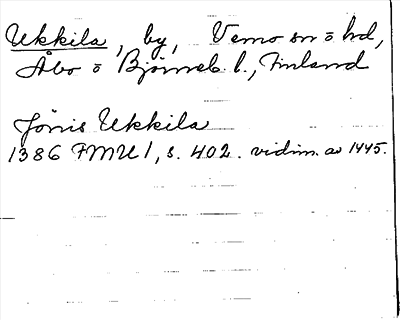 Ukkila, by, Vemo sn o hd,
Åbo o Björneb. l., Finland
Jönis Ukkila
1386 FMU 1, s. 402. vidim. av 1445.